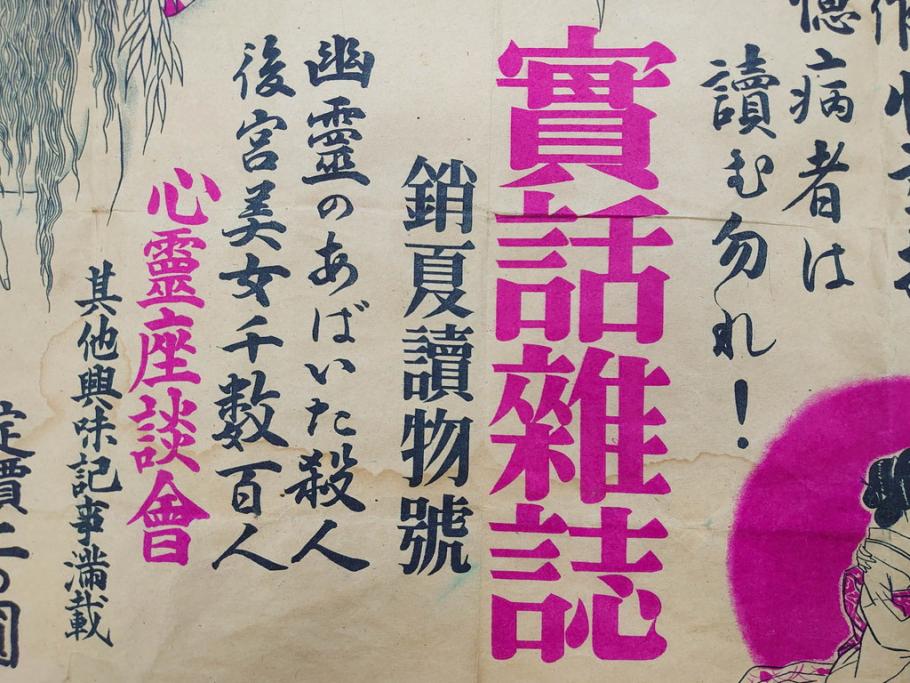 憶病者は
讀む勿れ！
實話雜誌
銷夏讀物號
幽靈のあばいた殺人
後宮美女千数百人
心靈座談會
其他興味記事滿載
定價二〇圓